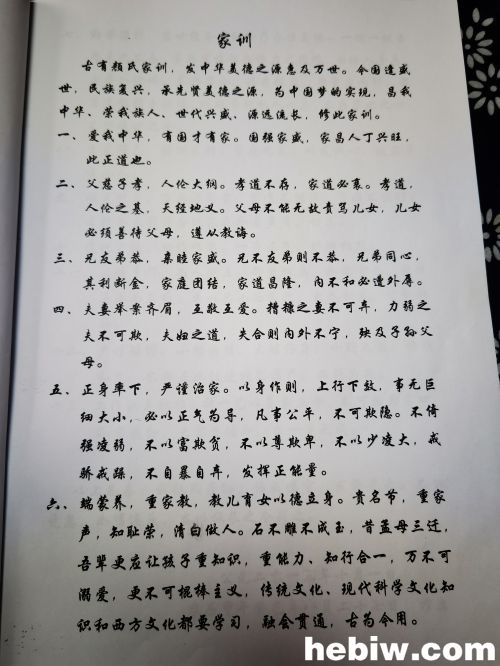 家训
古有颜氏家训，发中华美德之源惠及万世。今国逢盛
世，民族复兴，承先贤美德之源，为中国梦的实现，昌我
中华、荣我族人、世代兴盛、源远流长，修此家训。
一、爱我中华，有国才有家。国强家盛，家昌人丁兴旺，
此正道也。
二、父慈子孝，人伦大纲。孝道不存，家道必衰。孝道，
人伦之基，天经地义。父母不能无故责骂儿女，儿女
必须善待父母，遵从教诲。
三、兄友弟恭，亲睦家盛。兄不友弟则不恭，兄弟同心，
其利断金，家庭团结，家道昌隆，内不和必遭外辱。
四、夫妻举案齐眉，互敬互爱。糟糠之妻不可弃，力弱之
夫不可欺，夫妇之道，失合则内外不宁，殃及子孙父
母。
五、正身率下，严谨治家。以身作则，上行下效，事无巨
细大小，必以正气为导，凡事公平，不可欺隐。不倚
强凌弱，不以富欺贫，不以尊欺卑，不以少凌大，戒
骄戒躁，不自暴自弃，发挥正能量。
六、端蒙养，重家教，教儿育女以德立身。贵名节，重家
声，知耻荣，清白做人。石不雕不成玉，昔孟母三迁，
吾辈更应让孩子重知识，重能力、知行合一，万不可
溺爱，更不可棍棒主义，传统文化、现代科学文化知
识和西方文化都要学习，融会贯通，古为今用。
hebiw.com